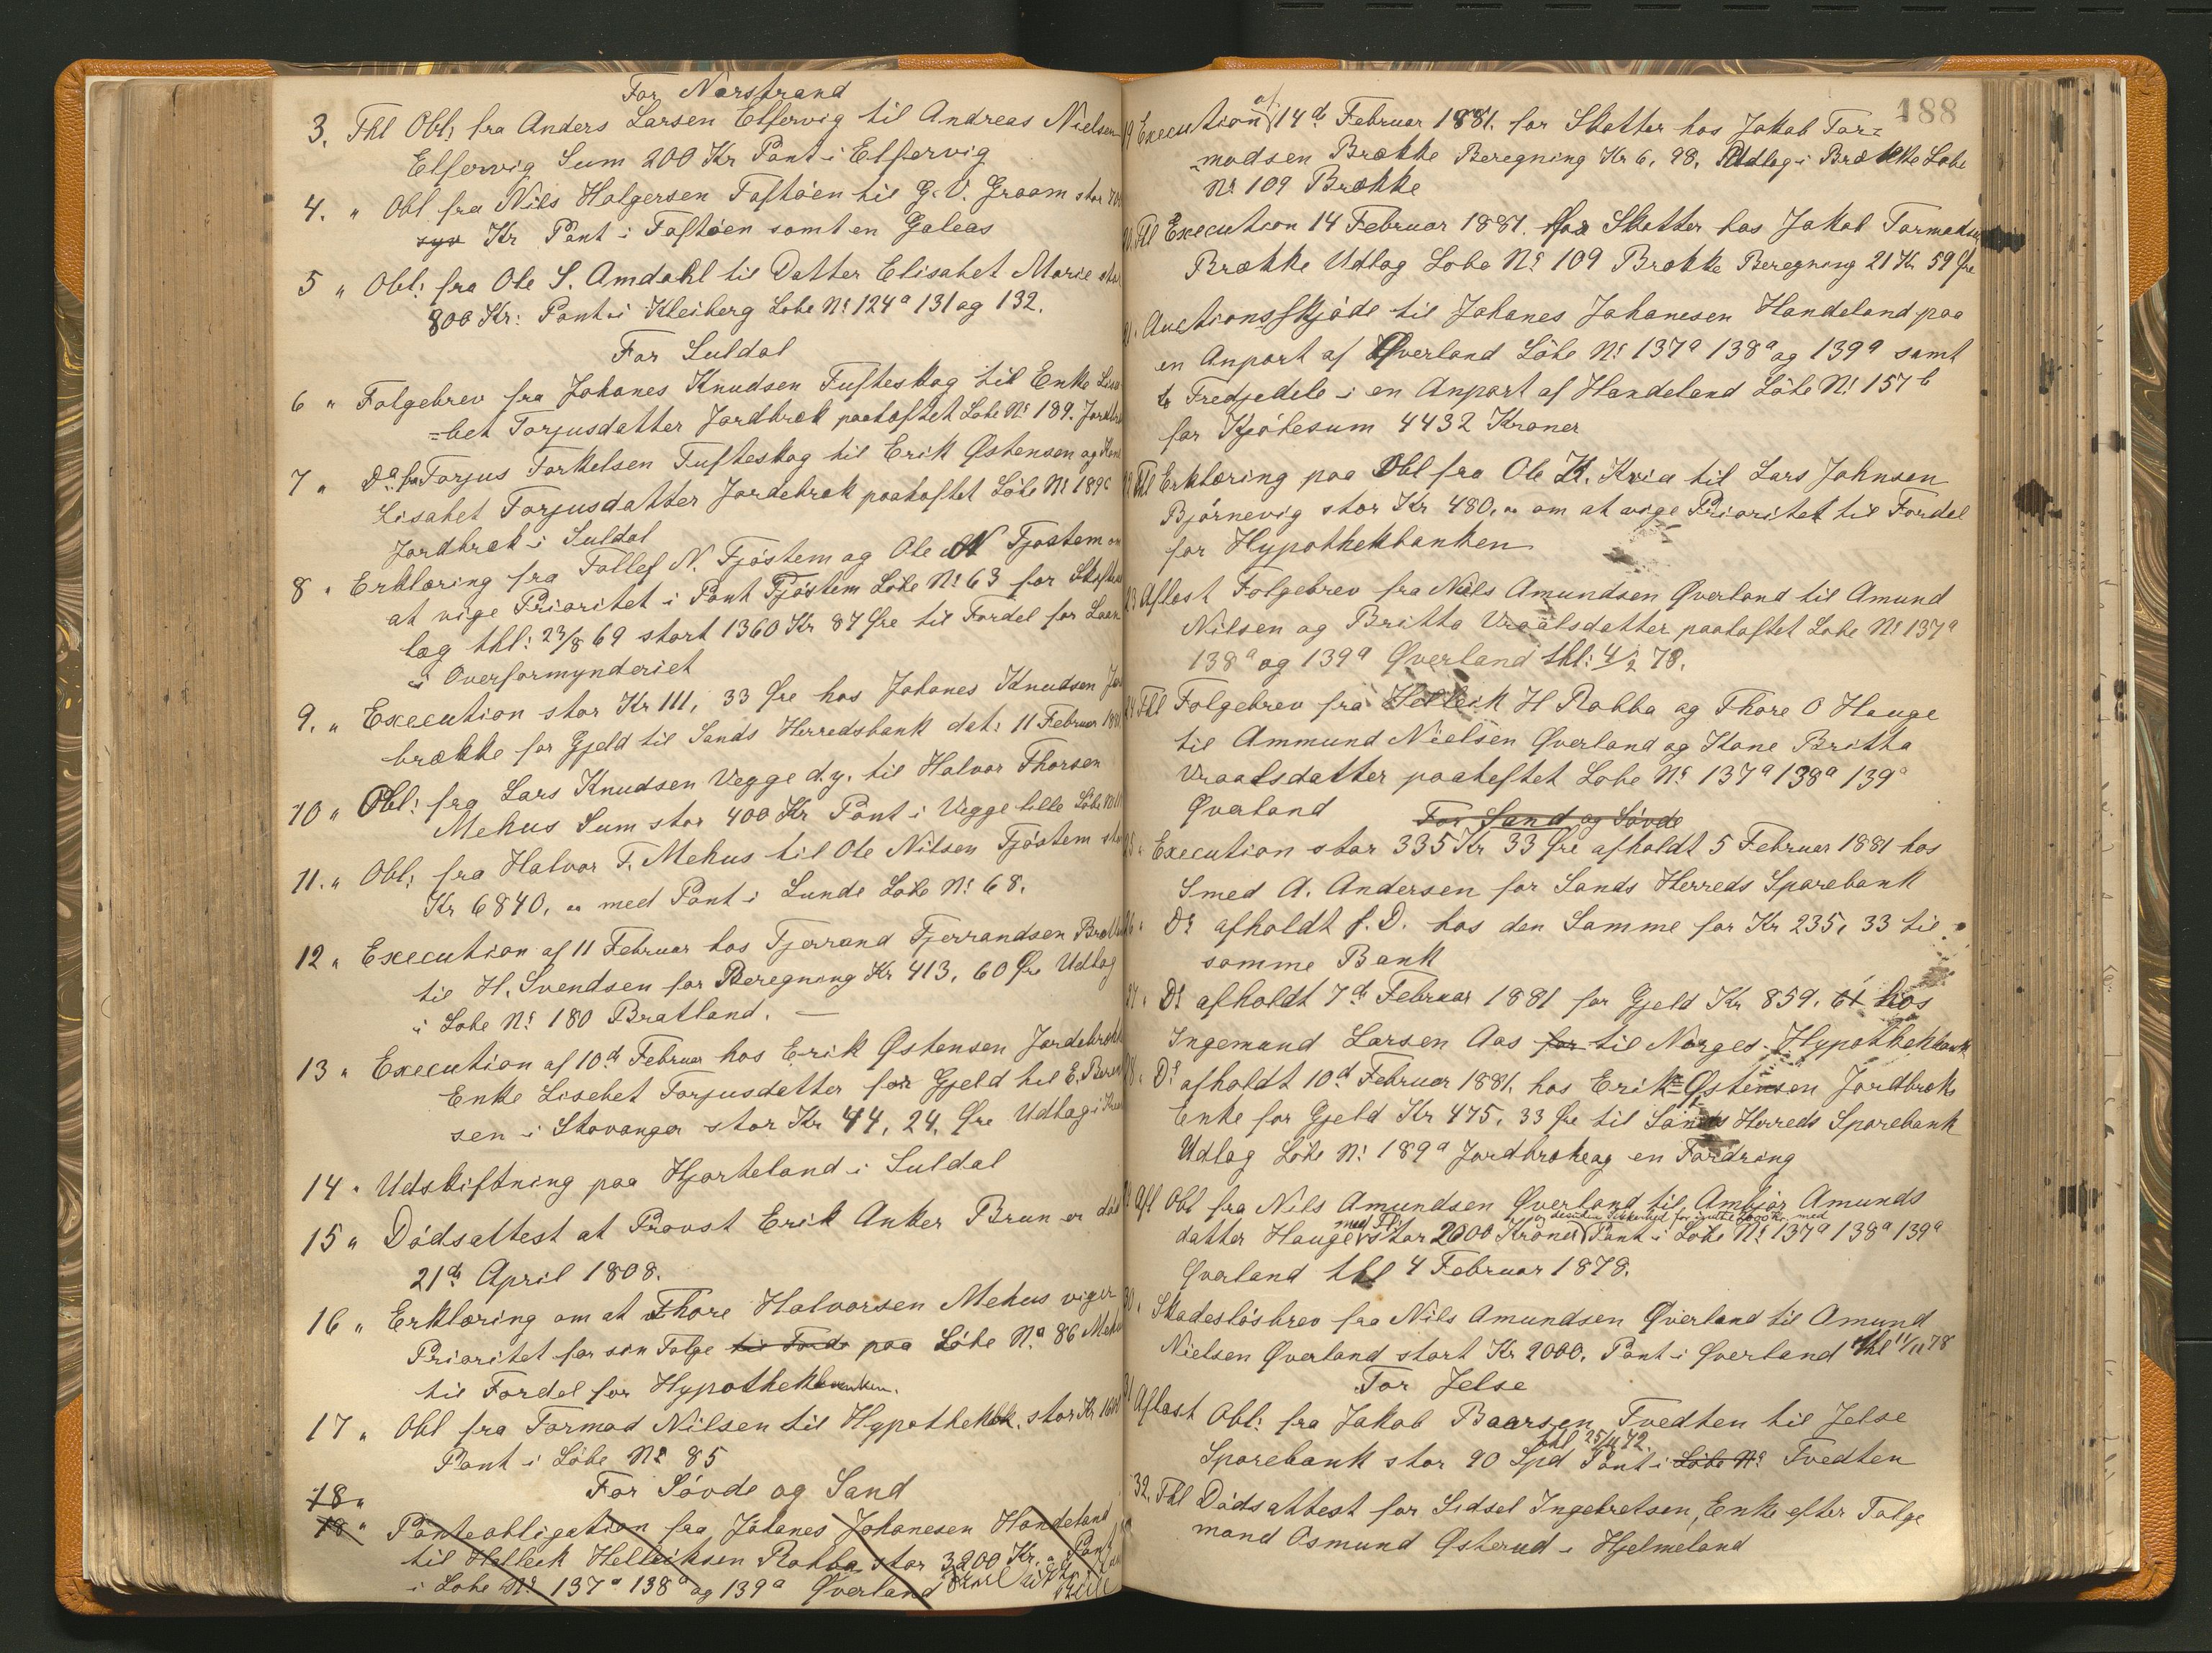 For Nærstrand
3. Thl Obl: fra Anders Larsen Elfervig til Andreas Nielsen
Elfervig Sum 200 Kr Pant i Elfervig
4. " Obl fra Nils Holgersen Toftøen til G. V. Graam stor 700
syv Kr Pant i Toftøen samt en Galeas
5 " Obl: fra Ole S. Amdahl til Datter Elisabet Marie stor
800 Kr: Pant i Kleiberg Løbe No 124a 131 og 132.
For Suldal
6 " Folgebrev fra Johanes Knudsen Tufteskog til Enke Lisa
=bet Torjusdatter Jordbræk paaheftet Løbe No 189. Jordbræk
7 " Do fra Torjus Torkelsen Tufteskog til Erik Østensen og Kone
Lisabet Torjusdatter Jordebræk paaheftet Løbe No 189c
Jordbræk i Suldal
8 " Erklæring fra Tollef N. Fjøstem og Ole N Fjøstem om
at vige Prioritet i Pant Fjøstem Løbe No 63 for
læg thl: 23/8 69 stort 1360 Kr 87 Øre til Fordel for Laan
i Overformynderiet
9. " Execution stor Kr 111, 33 Øre hos Johanes Knudsen Jor
brække for Gjeld til Sands Herredsbank dat: 11 Februar 1881
10 " Obl: fra Lars Knudsen Vegge d.y. til Halvor Thorsen
Mehus Sum stor 400 Kr Pant i Vegge lille Løbe No
11. " Obl: fra Halvor T. Mehus til Ole Nilsen Fjøstem stor
Kr 6840, " med Pant i Lunde Løbe No 68.
12 " Execution af 11 Februar hos Tjerrand Tjerrandsen Bratland
til H. Svendsen for Beregning Kr 413, 60 Øre Udlæg
i Løbe No 180 Bratland. —
13 " Execution af 10de Februar hos Erik Østensen Jordebrække
Enke Lisebet Torjusdatter for Gjeld til E. Beren
sen i Stavanger stor Kr 44, 24, Øre Udlæg i
14 " Udskiftning paa Hjorteland i Suldal
15 " Dødsattest at Provst Erik Anker Brun er død
21de April 1808.
16 " Erklæring om at Thore Halvorsen Mehus viger
Prioritet for sin Folge til Forde paa Løbe No 86 Mehus
til Fordel for Hypothekbanken.
17 " Obl fra Tormod Nilsen til Hypothekbk. stor Kr 1600
Pant i Løbe No 85
For Søvde og Sand
18 "
18 " Panteobligation fra Johanes Johanesen Handeland
til Helleck Hellecksen Rabba stor 3200 Kr. " Pant
i Løbe No 137a 138a og 139a Øverland
188
19 Execution af 14de Februar 1881. for Skatter hos Jakob Tor=
=modsen Brække Beregning Kr 6, 98, Udlæg i Brække Løbe
No 109 Brække
20. Thl Execution 14 Februar 1881. for Skatter hos Jakob Tormodsen
Brække Udlæg Løbe No 109 Brække Beregning 21 Kr 59 Øre
21. Auctionsskjøde til Johanes Johanesen Handeland paa
en Anpart af Øverland Løbe No 137a 138a og 139a samt
to Tredjedele i en Anpart af Handeland Løbe No 157b
for Kjøbesum 4432 Kroner
22 Thl Erklæring paa Obl fra Ole K. Kvia til Lars Johnsen
Bjørnevig stor Kr 480, " om at vige Prioritet til Fordel
for Hypothekbanken
23 Aflæst Folgebrev fra Niels Amundsen Øverland til Amund
Nilsen og Britta Vraalsdatter paaheftet Løbe No 137a
138a og 139a Øverland thl: 4/2 78.
24 Thl Folgebrev fra Helleik H Rabba og Thore O Hauge
til Ammund Nielsen Øverland og Kone Britha
Vraalsdatter paaheftet Løbe No 137a 138a 139a
Øverland For Sand og Søvde
25 " Execution stor 335 Kr 33 Øre afholdt 5 Februar 1881 hos
Smed A. Andersen for Sands Herreds Sparebank
26 " Do afholdt f. D. hos den Samme for Kr 235, 33 til
samme Bank
27 " Do afholdt 7de Februar 1881 for Gjeld Kr 859, 61 hos
Ingemund Larsen Aas for til Norges Hypothekbank
28 " Do afholdt 10de Februar 1881. hos Erik Østensen Jordbræks
Enke for Gjeld Kr 475, 33 Øre til Sands Herreds Sparebank
Udlæg Løbe No 189a Jordbræke og en Fordring
29 Afl Obl fra Nils Amundsen Øverland til Ambjør Amunds
og desuden Sikkerhed for 2000 Kr med
datter Hauge stor 2000 Kroner Pant i Løbe No 137a 138a 139a
Øverland thl 4 Februar 1878.
30 " Skadesløsbrev fra Nils Amundsen Øverland til Amund
Nielsen Øverland stort Kr 2000, Pant i Øverland thl 11/11 78
For Jelse
31 Aflæst Obl: fra Jakob Baarsen Tvedten til Jelse
thl 25/11 72.
Sparebank stor 90 Spd Pant i Løbe No Tvedten
32. Thl Dødsattest for Sidsel Ingebretsen, Enke efter Folge
mand Osmund Østerud i Hjelmeland